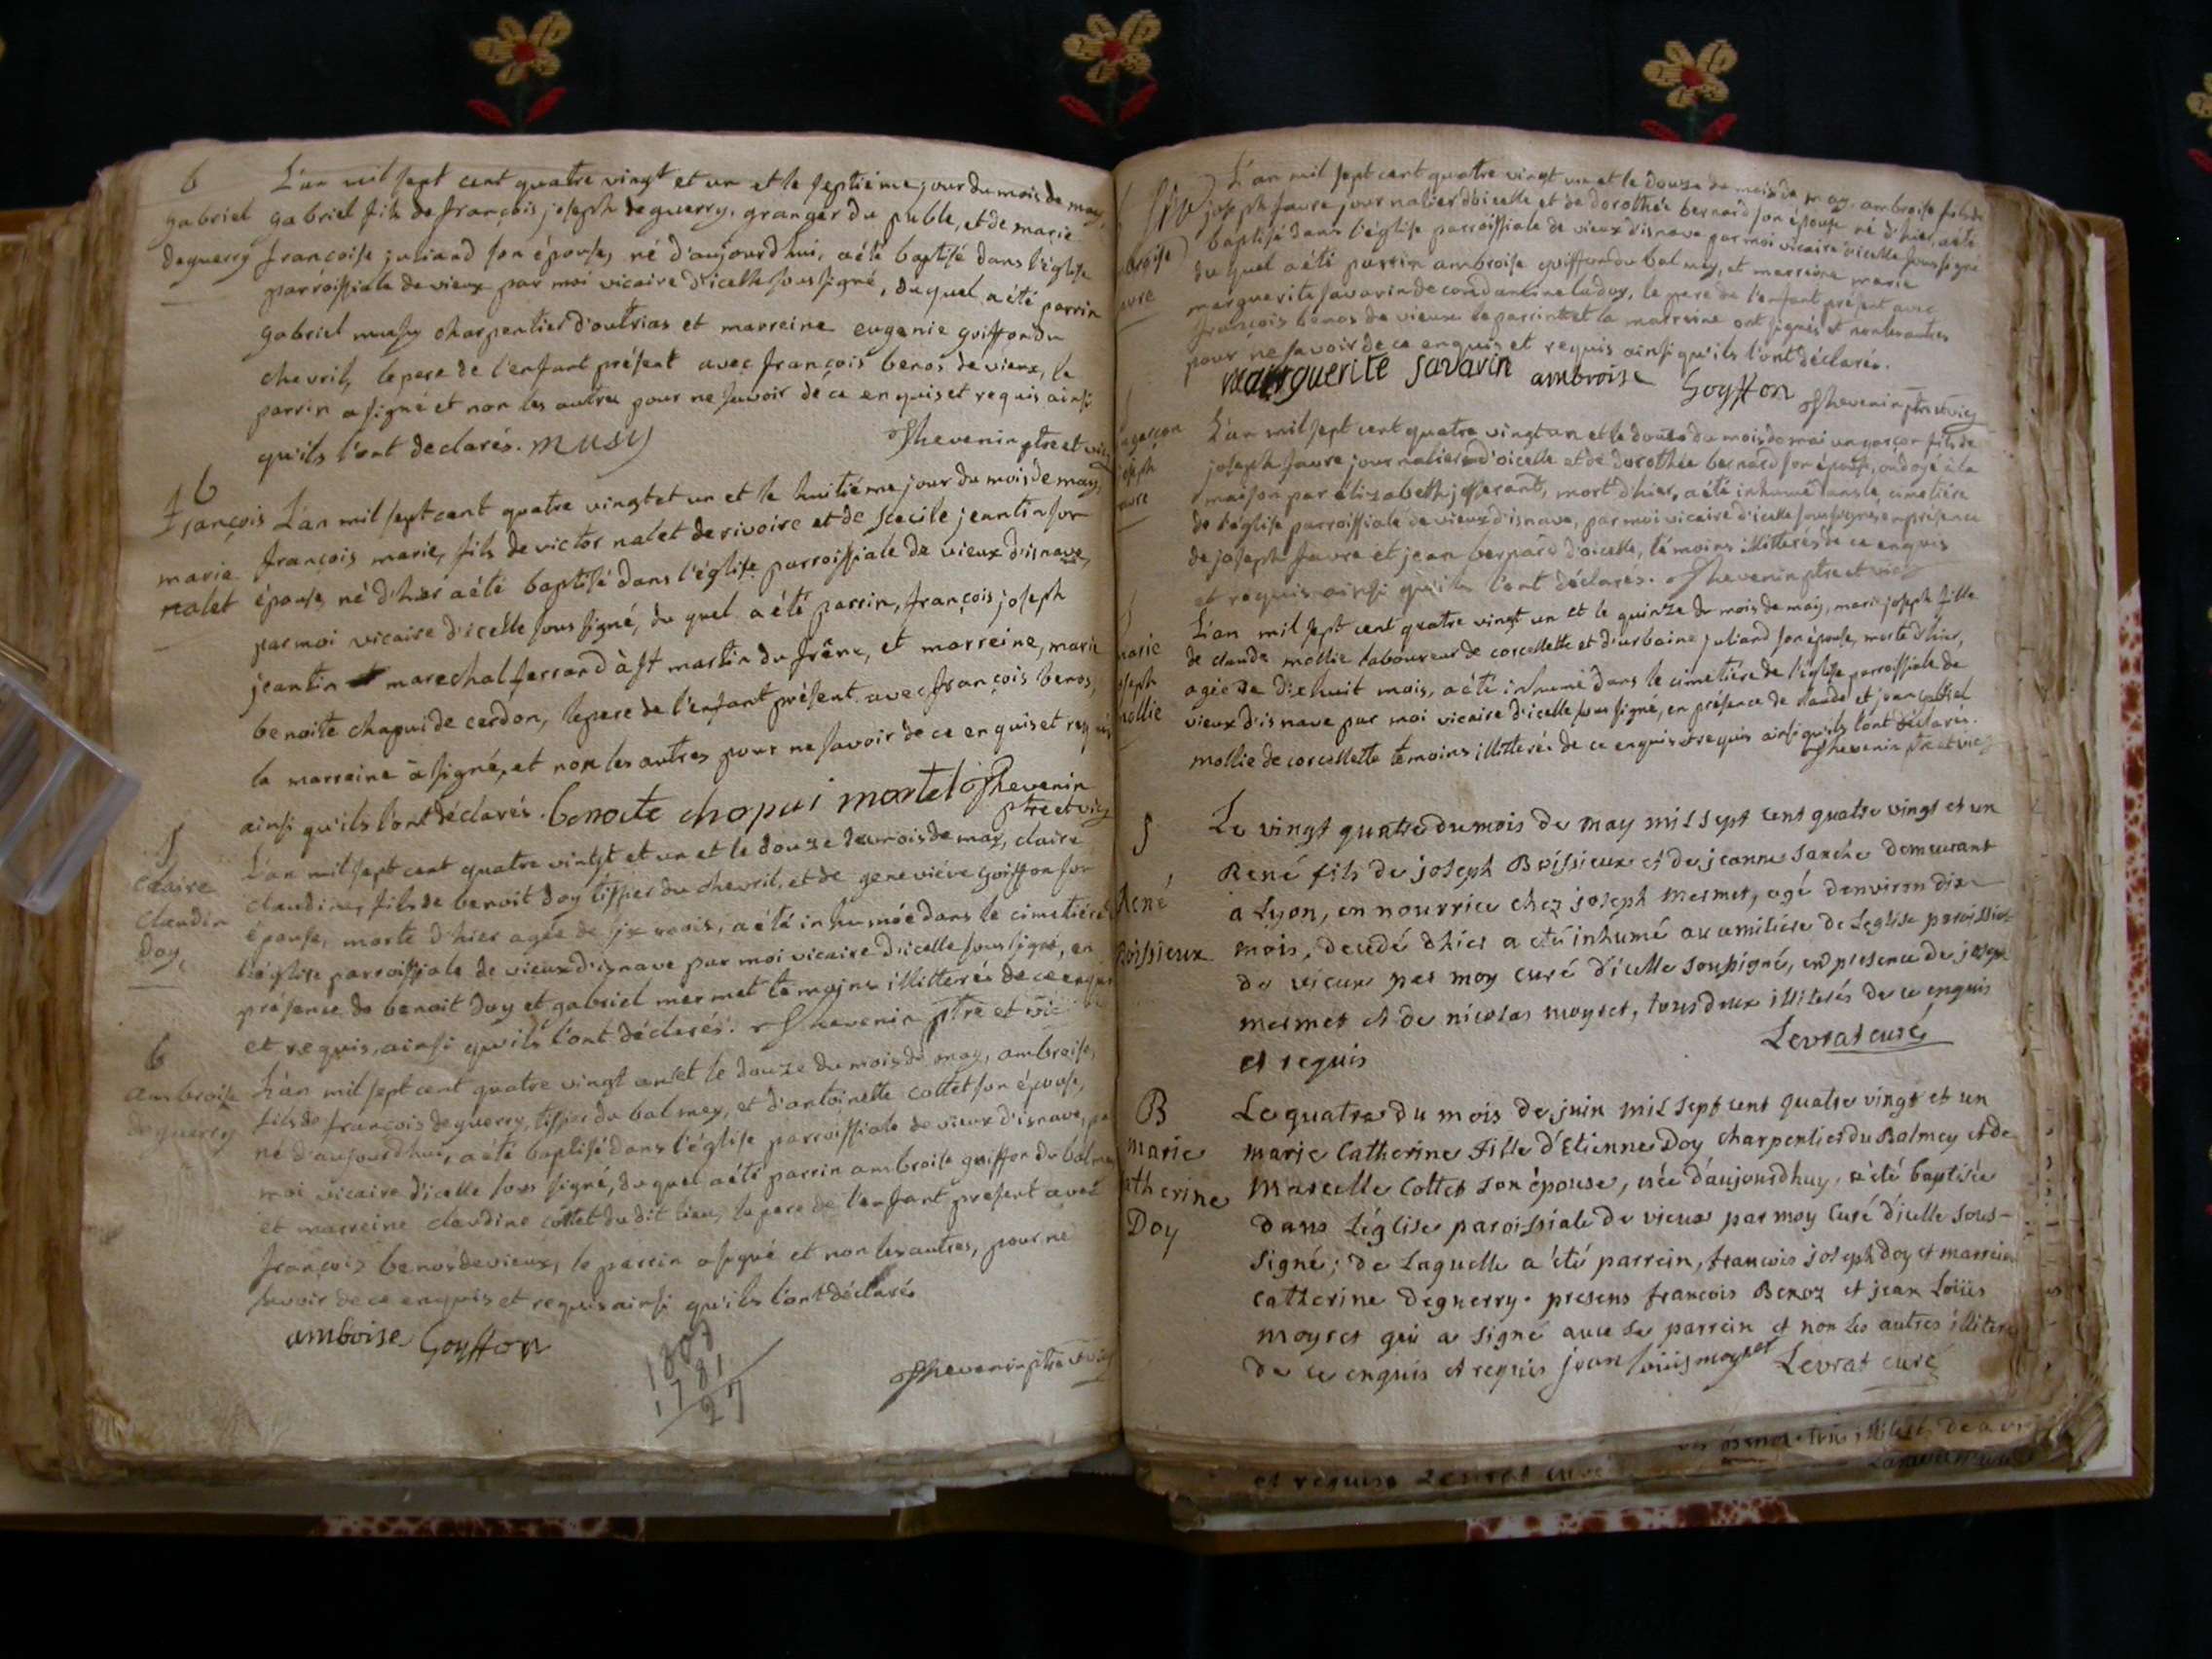 b
gabriel
deguerry
L'an mil sept cent quatre vingt et un et le septiéme jour du mois de may,
gabriel fils de françois joseph deguerry, granger du puble, et de marie
françoise juliand son épouse, né d'aujourd'hui, a été baptisé dans l'église
parroissiale de vieux par moi vicaire d'icelle soussigné, du quel a été parrin
gabriel musy charpentier d'outrias et marreine eugenie goiffon du
chevril, le pere de l'enfant présent avec françois benos de vieux, le
parrin a signé et non les autres pour ne savoir de ce enquis et requis ainsi
qu'ils l'ont declarés. musy Thevenin ptre et vic
b
françois
marie
nalet
L'an mil sept cent quatre vingt et un et le huitiéme jour du mois de may,
françois marie, fils de victor nalet de rivoire et de scecile jeantin son
épouse, né d'hier a été baptisé dans l'église parroissiale de vieux d'isnave,
par moi vicaire d'icelle sous signé, du quel a été parrin, françois joseph
jeantin marechal ferrand à st martin du frêne, et marreine, marie
benoite chapui de cerdon, le pere de l'enfant présent avec françois benos,
la marreine a signé, et non les autres pour ne savoir de ce enquis et requis
ainsi qu'ils l'ont déclarés. benoite chopui mortel Thevenin
ptre et vic
S
claire
claudin
Doy,
L'an mil sept cent quatre vingt et un et le douze du mois de may, claire
claudine, fils de benoit doy tissier du chevril, et de geneviéve goiffon son
épouse, morte d'hier agée de six mois, a été inhumée dans le cimetiére
de l'église parroissiale de vieux d'isnave par moi vicaire d'icelle sous signé, en
présence de benoit doy et gabriel mermet temoins illitterés de ce enquis
et requis, ainsi qu'ils l'ont déclarés. Thevenin ptre et vic
b
ambroise
deguerry
L'an mil sept cent quatre vingt un et le douze du mois de may, ambroise,
fils de françois deguerry, tissier du balmey, et d'antoinette cottet son épouse,
né d'aujourd'hui, a été baptisé dans l'église parroissiale de vieux d'isnave, par
moi vicaire d'icelle sous signé, du quel a été parrin ambroise goiffon du balmey
et marreine claudine cottet du dit lieu, le pere de l'enfant présent avec
françois benos de vieux, le parrin a signé et non les autres, pour ne
savoir de ce enquis et requis ainsi qu'ils l'ont déclarés
amboise Goyffon
1803
1781
27
Thevenin ptre et vic
L'an mil sept cent quatre vingt un et le douze du mois de may, ambroise fils de
joseph favre journalier d'icelle et de dorothée bernard son épouse né d'hier, a été
baptisé dans l'église parroissiale de vieux d'isnave par moi vicaire d'icelle sous signé
du quel a été parrin ambroise goiffon du balmey, et marreine marie
marguerite savarin de condamine la doy, le pere de l'enfant présent avec
françois benos de vieux le parrin et la marreine ont signés et non les autres
pour ne savoir de ce enquis et requis ainsi qu'ils l'ont déclarés.
marguerite savarin ambroise Goyffon Thevenin ptre et vic
garçon
joseph
favre
L'an mil sept cent quatre vingt un et le douze du mois de mai un garçon fils de
joseph favre journalier d'icelle et de dorothée bernard son épouse, ondoyé à la
maison par élizabeth jofferant, mort d'hier, a été inhumé dans le cimetiére
de l'église parroissiale de vieux d'isnave, par moi vicaire d'icelle soussigné, en présence
de joseph favre et jean bernard d'icelle, témoins illitterés de ce enquis
et requis ainsi qu'ils l'ont déclarés. Thevenin ptre et vic
S
marie
joseph
mollie
L'an mil sept cent quatre vingt un et le quinze du mois de may, marie joseph fille
de claude mollie laboureur de corcellette et d'urbaine juliand son épouse, morte d'hier,
agée de dix huit mois, a été inhumé dans le cimetiére de l'église parroissiale de
vieux d'isnave par moi vicaire d'icelle sous signé, en présence de claude et jean
mollie de corcellette temoins illitterés de ce enquis et requis ainsi qu'ils l'ont déclarés.
Thevenin ptre et vic
S
René
Boissieux
Le vingt quatre du mois de may mil sept cent quatre vingt et un
René fils de joseph Boissieux et de jeanne sanche demeurant
a Lyon, en nourrice chez joseph mermet, agé denviron dix
mois, decedé dhier a eté inhumé au cimitiere de Leglise paroissiale
de vieux par moy curé d'icelle soussigné, en presence de joseph
mermet et de nicolas moyret, tous deux illiterés de ce enquis
et requis Levrat curé
B
marie
Catherine
Doy
Le quatre du mois de juin mil sept cent quatre vingt et un
marie Catherine Fille d'Etienne Doy charpentier du Balmey et de
Marcelle Cottet son épouse, née d'aujourdhuy, a été baptisée
dans Léglise paroissiale de vieux par moy Curé d'icelle sous-
signé; de Laquelle a été parrein, francois joseph doy et marreine
catherine deguerry. presens francois Benoz et jean Loüis
moyret qui a signé avec Le parrein et non Les autres illiterés
de ce enquis et requis jean louis moyret Levrat curé
et requis Levrat curé